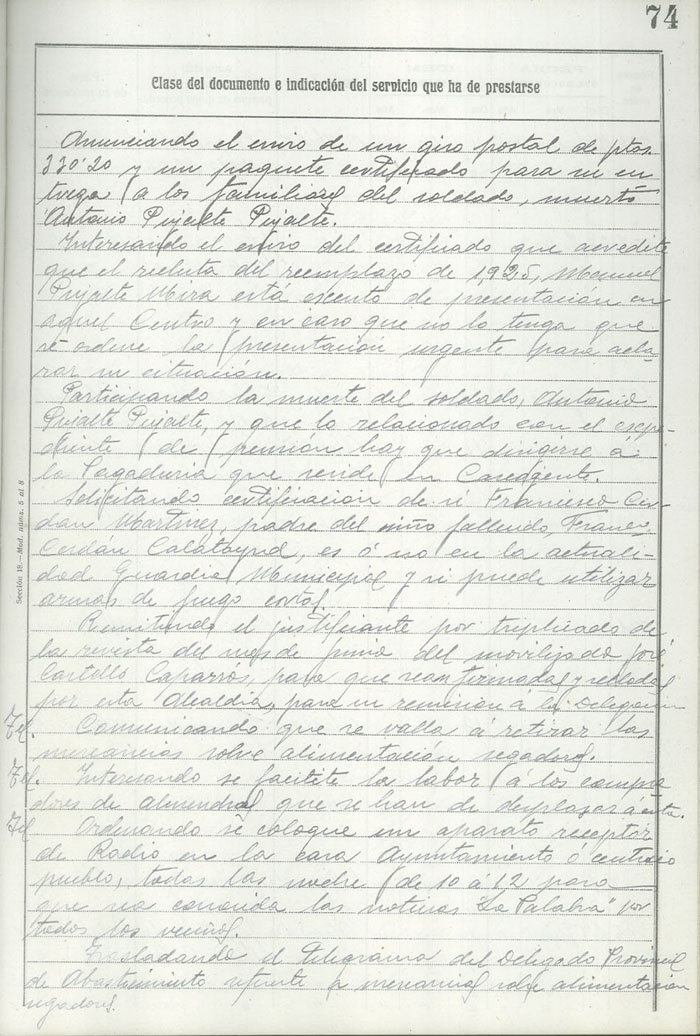 74
Clase del documento e indicación del servicio que ha de prestarse
Anunciando el envio de un giro postal de ptas.
330'20 y un paquete certificado para su en
trega a los familiares del soldado, muerto
Antonio Pujalte Pujalte.
Interesando el envio del certificado que acredite
que el recluta del reemplazo de 1,925, Manuel
Pujalte Mira está escento de presentación en
aquel Centro y en caso que no lo tenga que
se ordene la presentación urgente para acla
rar su situación.
Participando la muerte del soldado, Antonio
Pujalte Pujalte, y que lo relacionado con el expe-
diente de pensión hay que dirigirse á
la Pagaduria que reside en Carcagente.
Solicitando certificacion de si Francisco Cer
dán Martinez, padre del niño fallecido, Franco.
Cerdán Calatayud, es ó no en la actuali-
dad Guardia Municipal y si puede utilizar
armas de fuego cortas.
Remitendo el justificante por triplicado de
la revista del mes de junio del movilizado José
Castelló Caparrós, para que sean firmadas y selladas
por esta Alcaldia, para su remision á la Delegacion
Tel. Comunicando que se valla á retirar las
mercancias sobre alimentación segadores.
Tel. Interesando se facilite la labor á los compra
dores de almendras que se han de desplazar á esta.
Tel Ordenando se coloque un aparato receptor
de Radio en la casa Ayuntamiento ó centrico
pueblo, todas las noches de 10 á 12 para
que sea conocida las noticias "La Palabra" por
todos los vecinos.
Trasladando el telegrama del Delegado Provincial
de Abastecimiento referente a mercancias sobre alimentacion
segadores.
Sección 18.—Mod. núms. 5 al 8